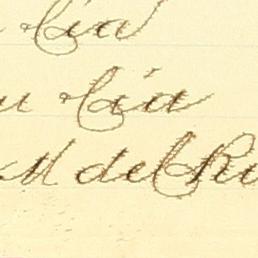 Cia
Cia
M del Ri